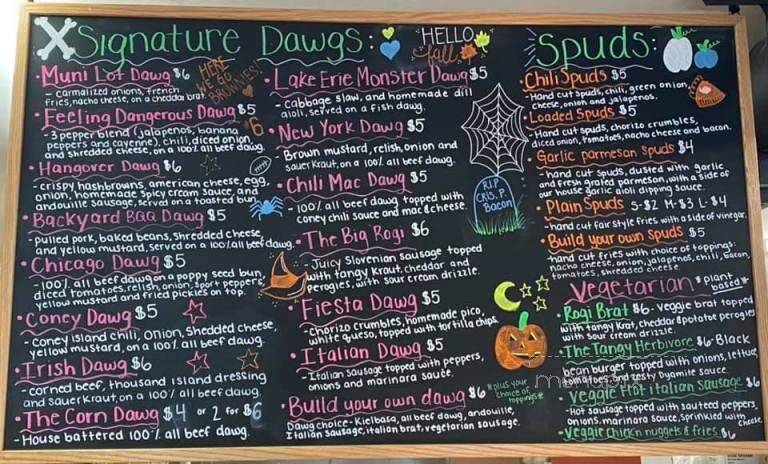 Signature Dawgs:
HERE WE GO BROWNIES!
• Muni Lot Dawg $6
- carmalized onions, french
fries, nacho sheese, on a chedda brat.
• Feeling Dangerous Dawg $5
- 3 pepper blend (jalapenos, banana
peppers and cayenne), chili, diced onion
and shredded cheese, on a 100% all beef dawg.
• Hangover Dawg $6
- crispy hashbrowns, american cheese, egg,
onion, homemade spicy cream sauce, and
andouille sausage, served on a toasted bun.
• Backyard BBQ Dawg $5
- pulled pork, baked beans, shredded cheese,
and yellow mustard, served on a 100% all beef dawg.
• Chicago Dawg $5
- 100% all beef dawg on a poppy seed bun,
diced tomatoes, relish, onion, sport peppers,
yellow mustard and fried pickles on top.
• Coney Dawg $5
- coney island chili, onion, shedded cheese,
yellow mustard, on a 100% all beef dawg.
• Irish Dawg $6
- corned beef, thousand island dressing
and sauerkraut, on a 100% all beef dawg.
• The Corn Dawg $4 or 2 for $6
- House battered 100% all beef dawg.
HELLO
fall
• Lake Erie Monster Dawg $5
- cabbage slaw, and homemade dill
aioli, served on a fish dawg.
• New York Dawg $5
Brown mustard, relish, onion and
sauerkraut, on a 100% all beef dawg.
• Chili Mac Dawg $5
- 100% all beef dawg topped with
coney chili sauce and mac & cheese.
• The Big Rogi $6
- Juicy Slovenian sausage topped
with tangy kraut, cheddar and
perogies, with sour cream drizle.
• Fiesta Dawg $5
- Chorizo crumbles, homemade pico,
white queso, topped with tortilla chips.
• Italian Dawg $5
- Italian sausage topped with peppers,
onions and marinara sauce.
• Build your own dawg $6 *plus your choice of toppings*
Dawg choice - Kielbasa, all beef dawg, andouille,
Italian sausage, italian brat, vegetarian sausage.
R.I.P
CRIS. P.
Bacon
Spuds:
• Chili Spuds $5
- Hand cut spuds, chili, green onion,
cheese, onion and jalapenos.
• Loaded Spuds $5
- Hand cut spuds, chorizo crumbles,
diced onion, tomatoes, nacho cheese and bacon.
• Garlic parmesan spuds $4
- hand cut spuds, dusted with garlic
and fresh grated parmesan, with a side of
our house garlic aioli dipping sauce.
• Plain Spuds S-$2 M-$3 L-$4
- hand cut fair style fries with a side of vinegar.
• Build your own spuds $5
- hand cut fries with choice of toppings:
nacho cheese, onion, jalapenos, chili, bacon,
tomatoes, shredded cheese.
Vegetarian *plant based*
• Rogi Brat $6 - veggie brat topped
with tangy krat, cheddar & potatoe perogies
with sour cream drizzle.
• The Tangy Herbivore $6 - Black
bean burger topped with onions, lettuce
tomatoes, and zesty Dynamite sauce.
• Veggie Hot italian sausage $6
- Hot sausage topped with sauteed peppers,
onions, marinara sauce, sprinkled with cheese
• Veggie chickn nuggets & fries $6